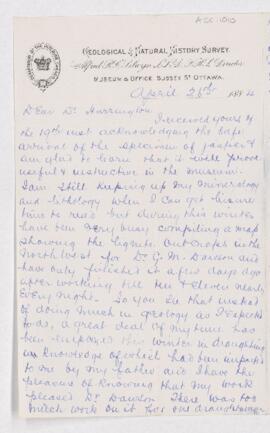 ACC-1010
GEOLOGICAL & NATURAL HISTORY SURVEY.
Alfred R. C. Selwyn, LL.D., F.R.S., Director.
MUSEUM & OFFICE SUSSEX ST OTTAWA.
April 26th 1884
Dear Dr Harrington
I received yours of
the 19th inst acknowledging the safe
arrival of the specimen of jasper &
am glad to learn that it will prove
useful & instructive in the museum.
I am still keeping up my mineralogy
and lithology when I can get leisure
time to read but during this winter
have been very busy compiling a map
showing the lignite outcrops in the
North West for Dr G. M. Dawson and
have only finished it a few days ago
after working till ten & eleven nearly
every night. So you see that instead
of doing much in geology as I expected
to do, a great deal of my time has
been employed this winter in draughting
a knowledge of which had been imparted
to me by my father and I have the
pleasure of knowing that my work
pleased Dr Dawson There was too
much work on it for one draughtsman